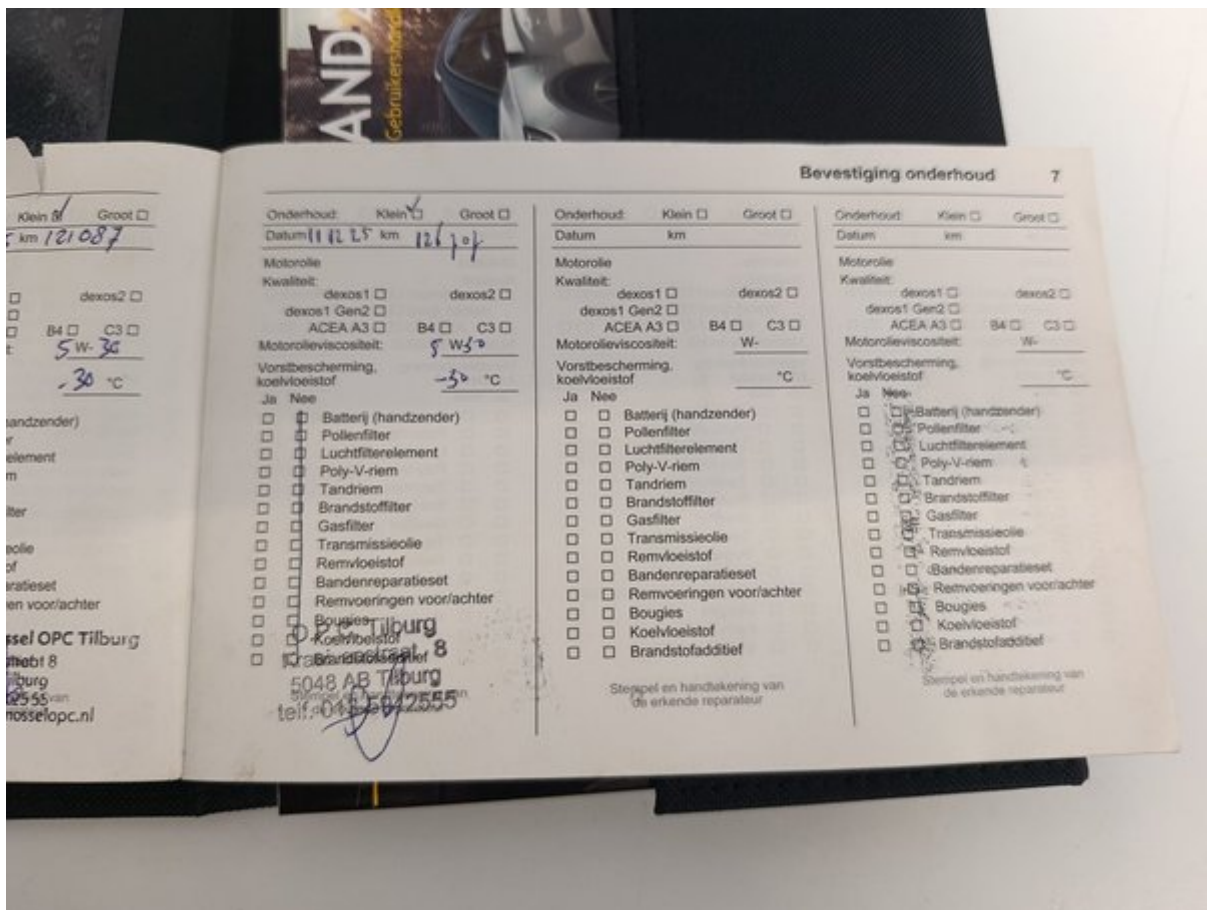 AND
Gebruikershand
Bevestiging onderhoud 7
Klein Groot
km 121087
dexos2
B4 C3
5 W-30
-30 °C
andzender)
element
m
lter
eolie
of
aratieset
en voor/achter
ssel OPC Tilburg
straat 8
lburg
2555 van
nosselopc.nl
Onderhoud: Klein Groot
Datum 11 12 25 km 126707
Motorolie
Kwaliteit:
dexos1 dexos2
dexos1 Gen2
ACEA A3 B4 C3
Motorolieviscositeit: 5 W30
Vorstbescherming,
koelvloeistof -30 °C
Ja Nee
Batterij (handzender)
Pollenfilter
Luchtfilterelement
Poly-V-riem
Tandriem
Brandstoffilter
Gasfilter
Transmissieolie
Remvloeistof
Bandenreparatieset
Remvoeringen voor/achter
Bougies
Koelvloeistof
Brandstofadditief
O.P.C. Tilburg
8
5048 AB Tilburg
Stempel en handtekening van
telf. 013-5942555
Onderhoud: Klein Groot
Datum km
Motorolie
Kwaliteit:
dexos1 dexos2
dexos1 Gen2
ACEA A3 B4 C3
Motorolieviscositeit: W-
Vorstbescherming,
koelvloeistof °C
Ja Nee
Batterij (handzender)
Pollenfilter
Luchtfilterelement
Poly-V-riem
Tandriem
Brandstoffilter
Gasfilter
Transmissieolie
Remvloeistof
Bandenreparatieset
Remvoeringen voor/achter
Bougies
Koelvloeistof
Brandstofadditief
Stempel en handtekening van
de erkende reparateur
Onderhoud: Klein Groot
Datum km
Motorolie
Kwaliteit:
dexos1 dexos2
dexos1 Gen2
ACEA A3 B4 C3
Motorolieviscositeit: W-
Vorstbescherming,
koelvloeistof °C
Ja Nee
Batterij (handzender)
Pollenfilter
Luchtfilterelement
Poly-V-riem
Tandriem
Brandstoffilter
Gasfilter
Transmissieolie
Remvloeistof
Bandenreparatieset
Remvoeringen voor/achter
Bougies
Koelvloeistof
Brandstofadditief
Stempel en handtekening van
de erkende reparateur